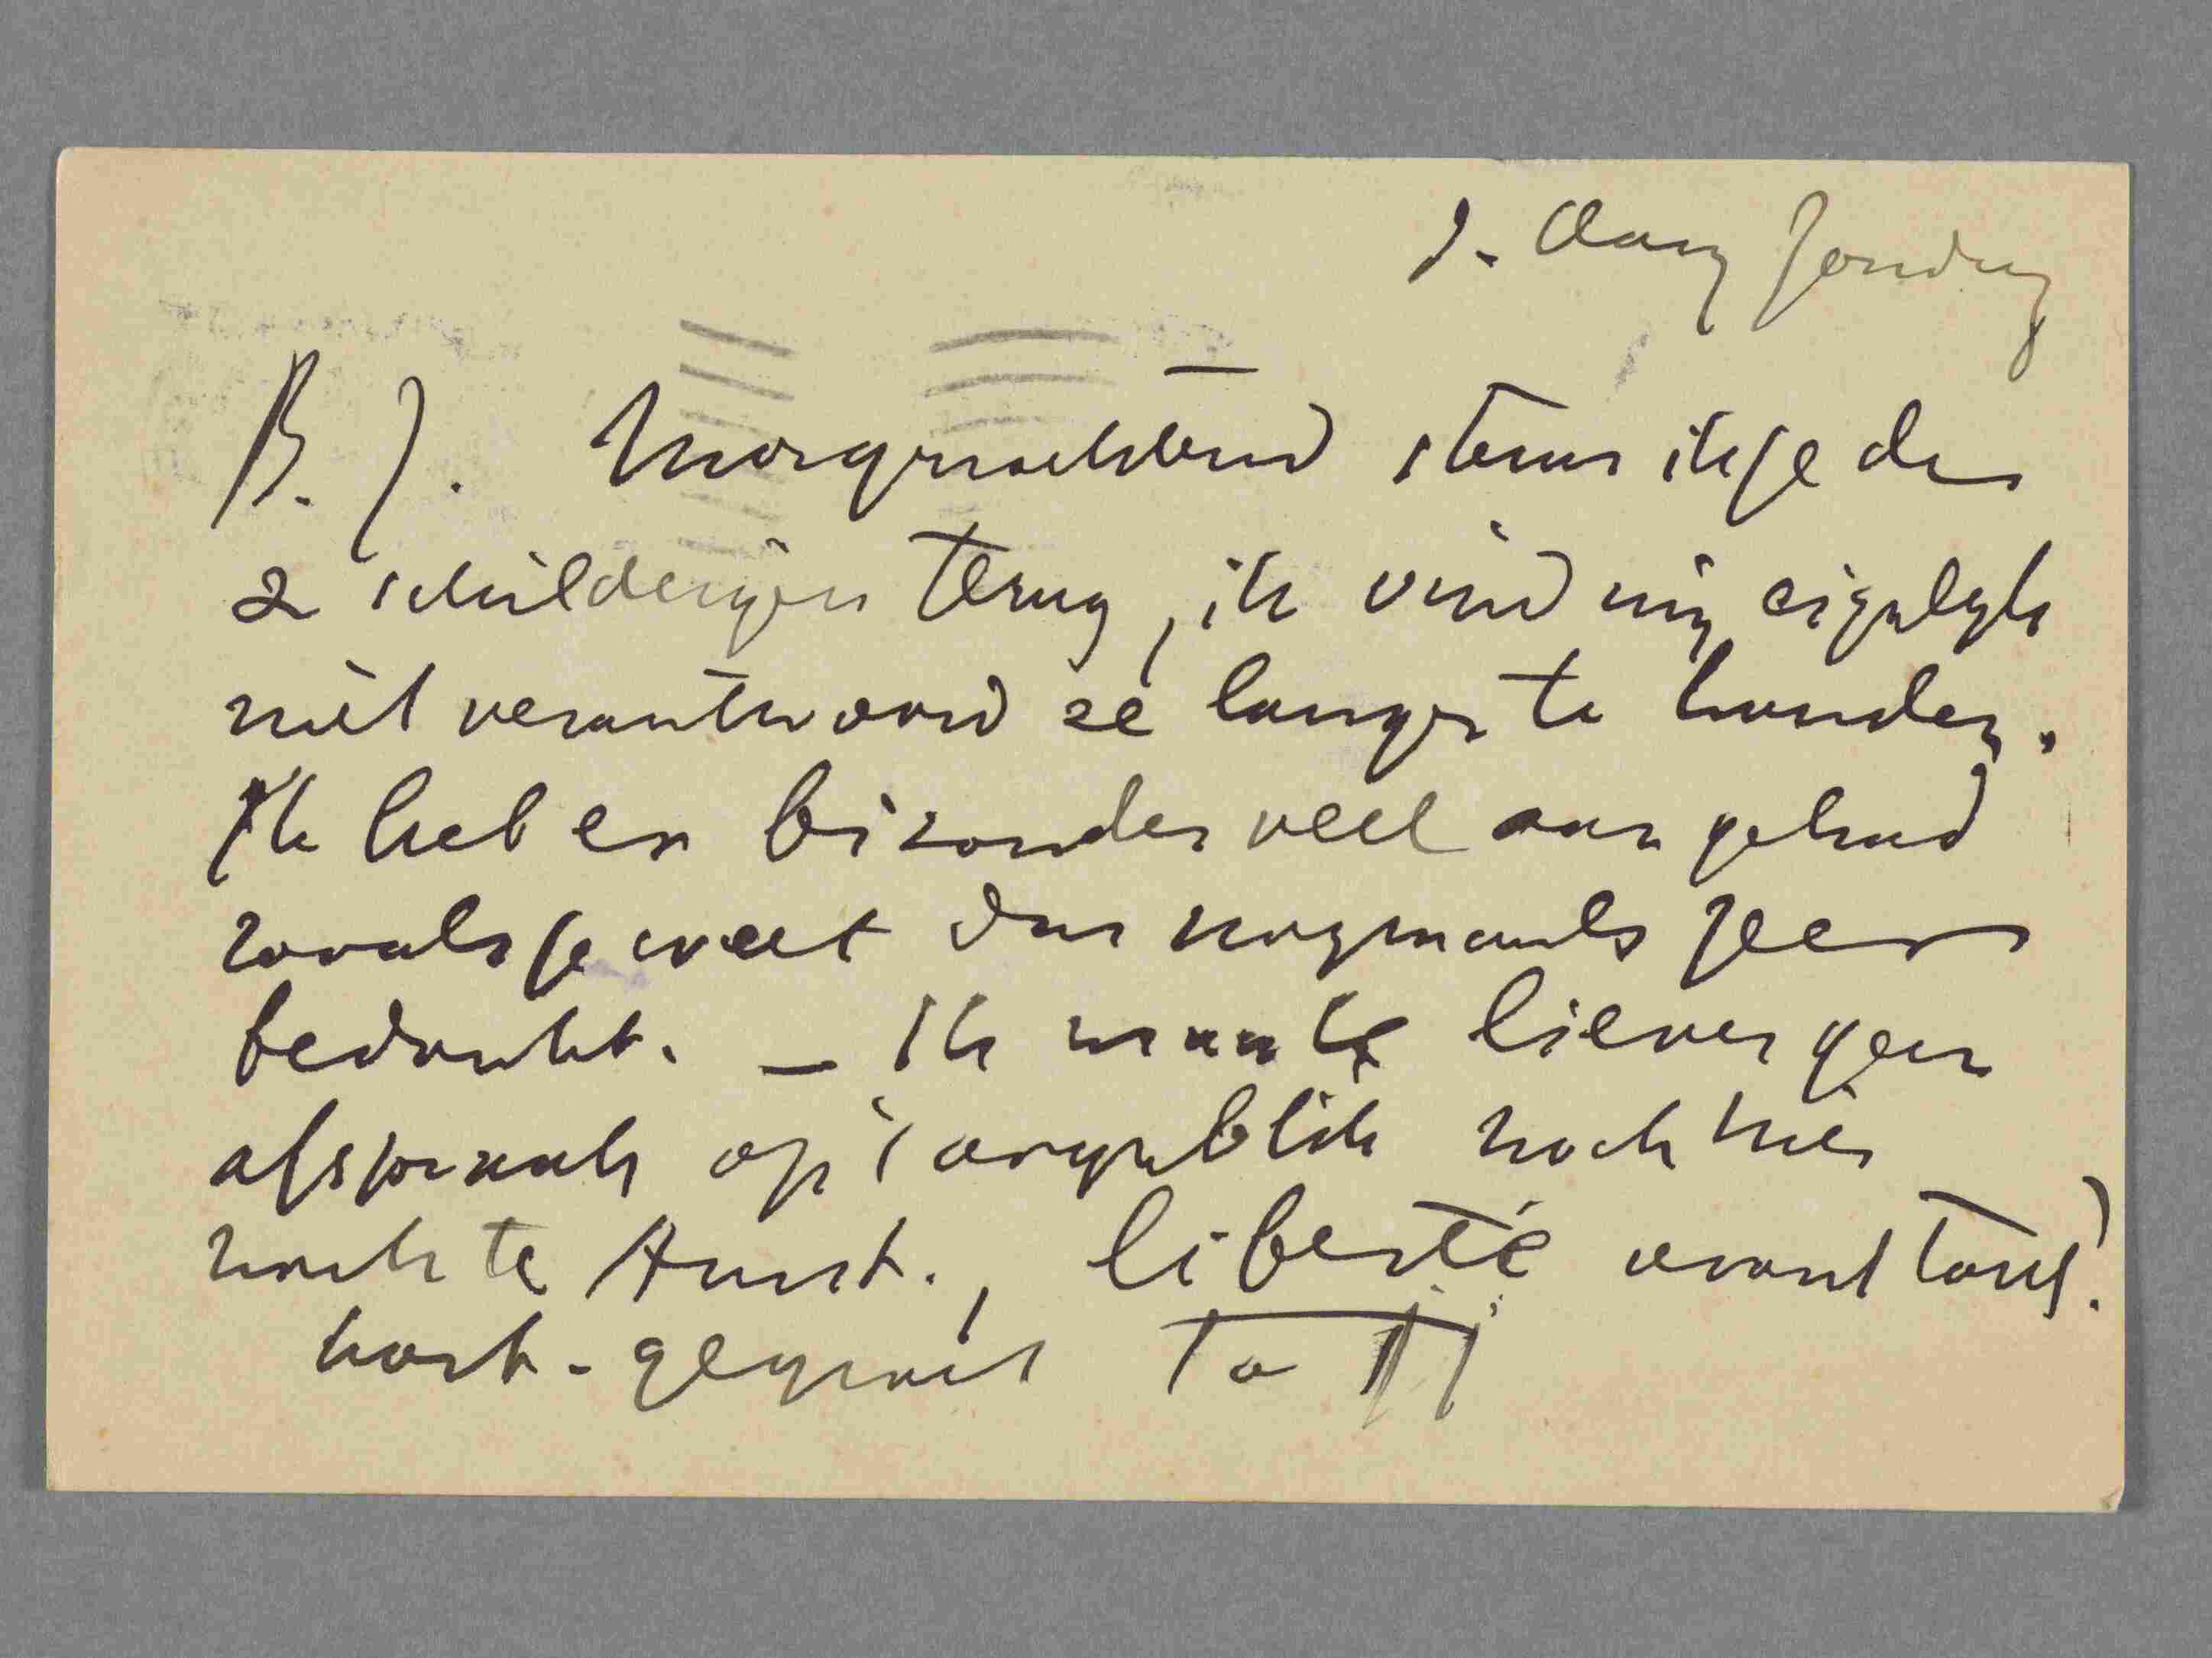 d. Haag Zondag
B. J. Morgenochtend stuur ik je de
2 schilderijen terug, ik vind mij eigenlyk
niet verantwoord ze langer te houden.
Ik heb er bizonder veel aan gehad
zooals je weet dus nogmaals zeer
bedankt. — Ik maak liever geen
afspraak op 't oogenblik noch hier
noch te Amst., liberté avant tout!
hart. gegroet